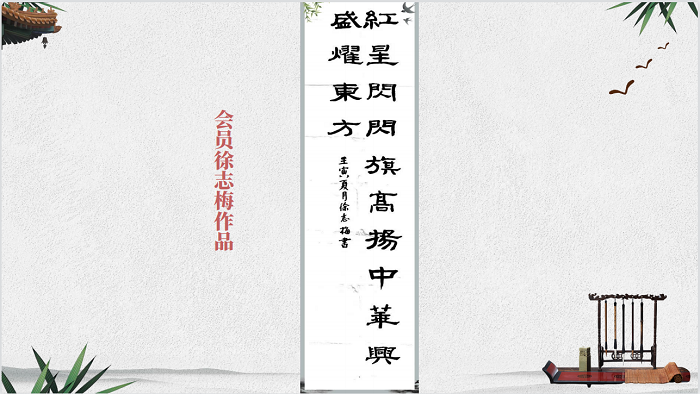 紅星閃閃旗高揚中華興
盛耀東方
壬寅夏月徐志梅書
会员徐志梅作品